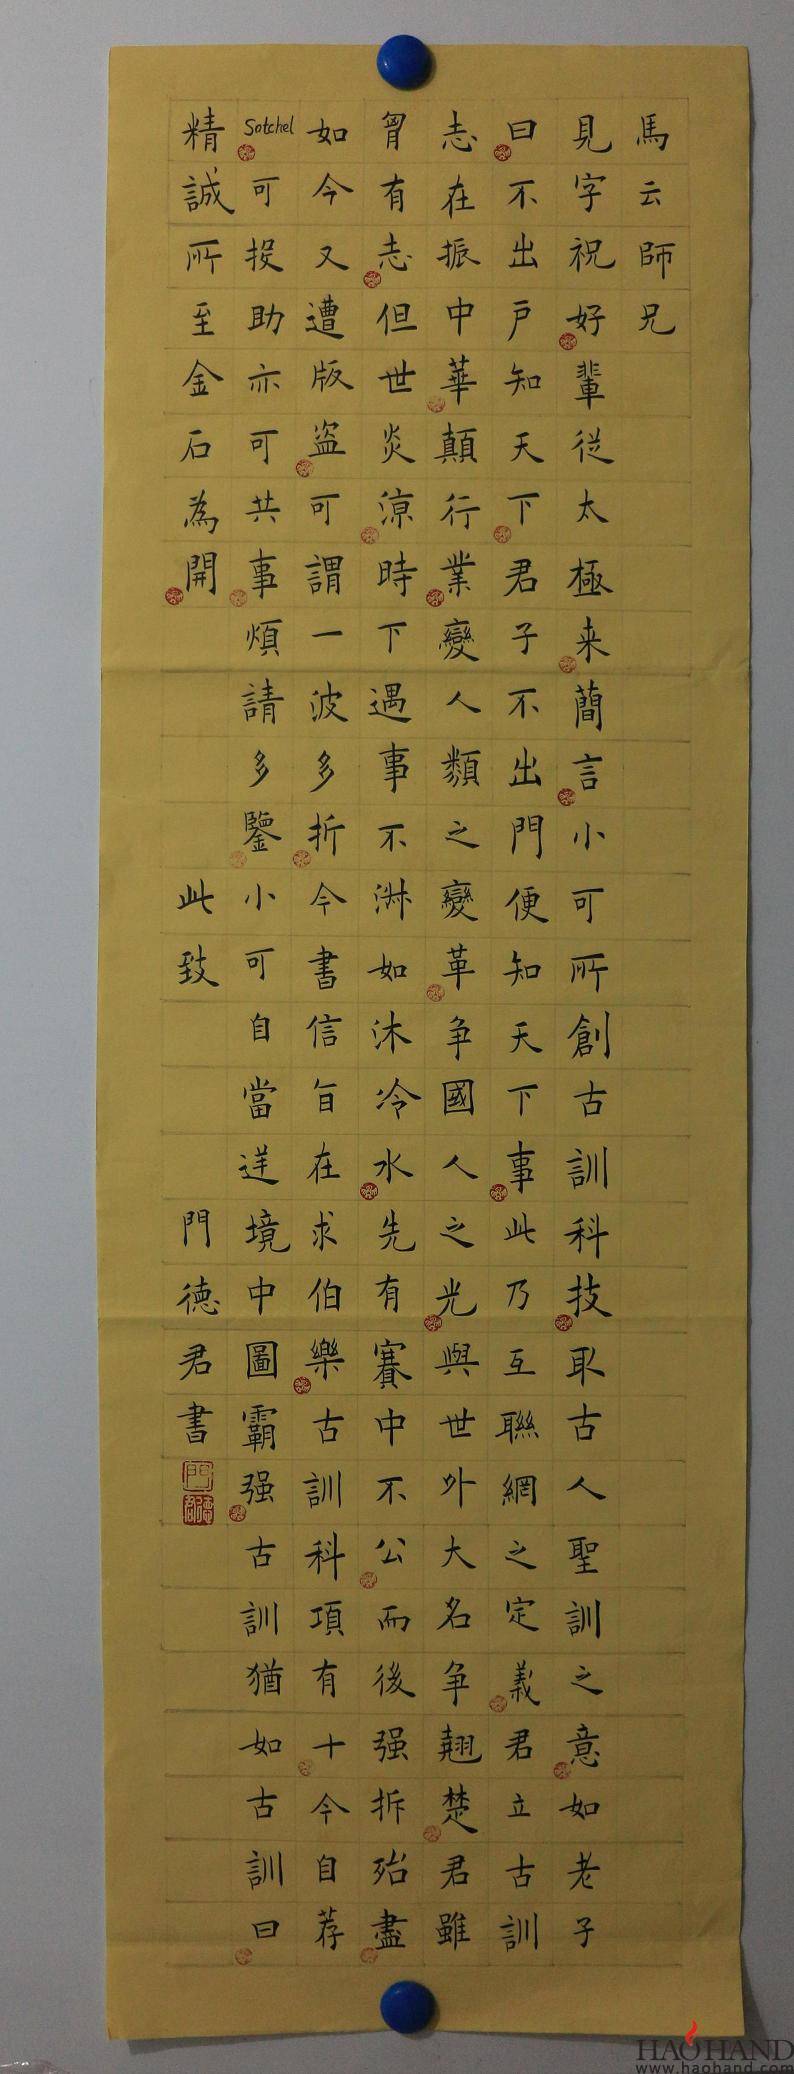 馬云師兄
見字祝好輩從太極来簡言小可所創古訓科技取古人聖訓之意如老子
曰不出戶知天下君子不出門便知天下事此乃互聯網之定義君立古訓
志在振中華顛行業變人類之變革争國人之光與世外大名争翹楚君雖
胷有志但世炎凉時下遇事不淋如沐冷水先有賽中不公而後强拆殆盡
如今又遭版盗可謂一波多折今書信旨在求伯樂古訓科項有十今自荐
Satchel可投助亦可共事煩請多鑒小可自當送境中圖霸强古訓猶如古訓曰
精誠所至金石為開 此致 門德君書
HAOHAND
www.haohand.com